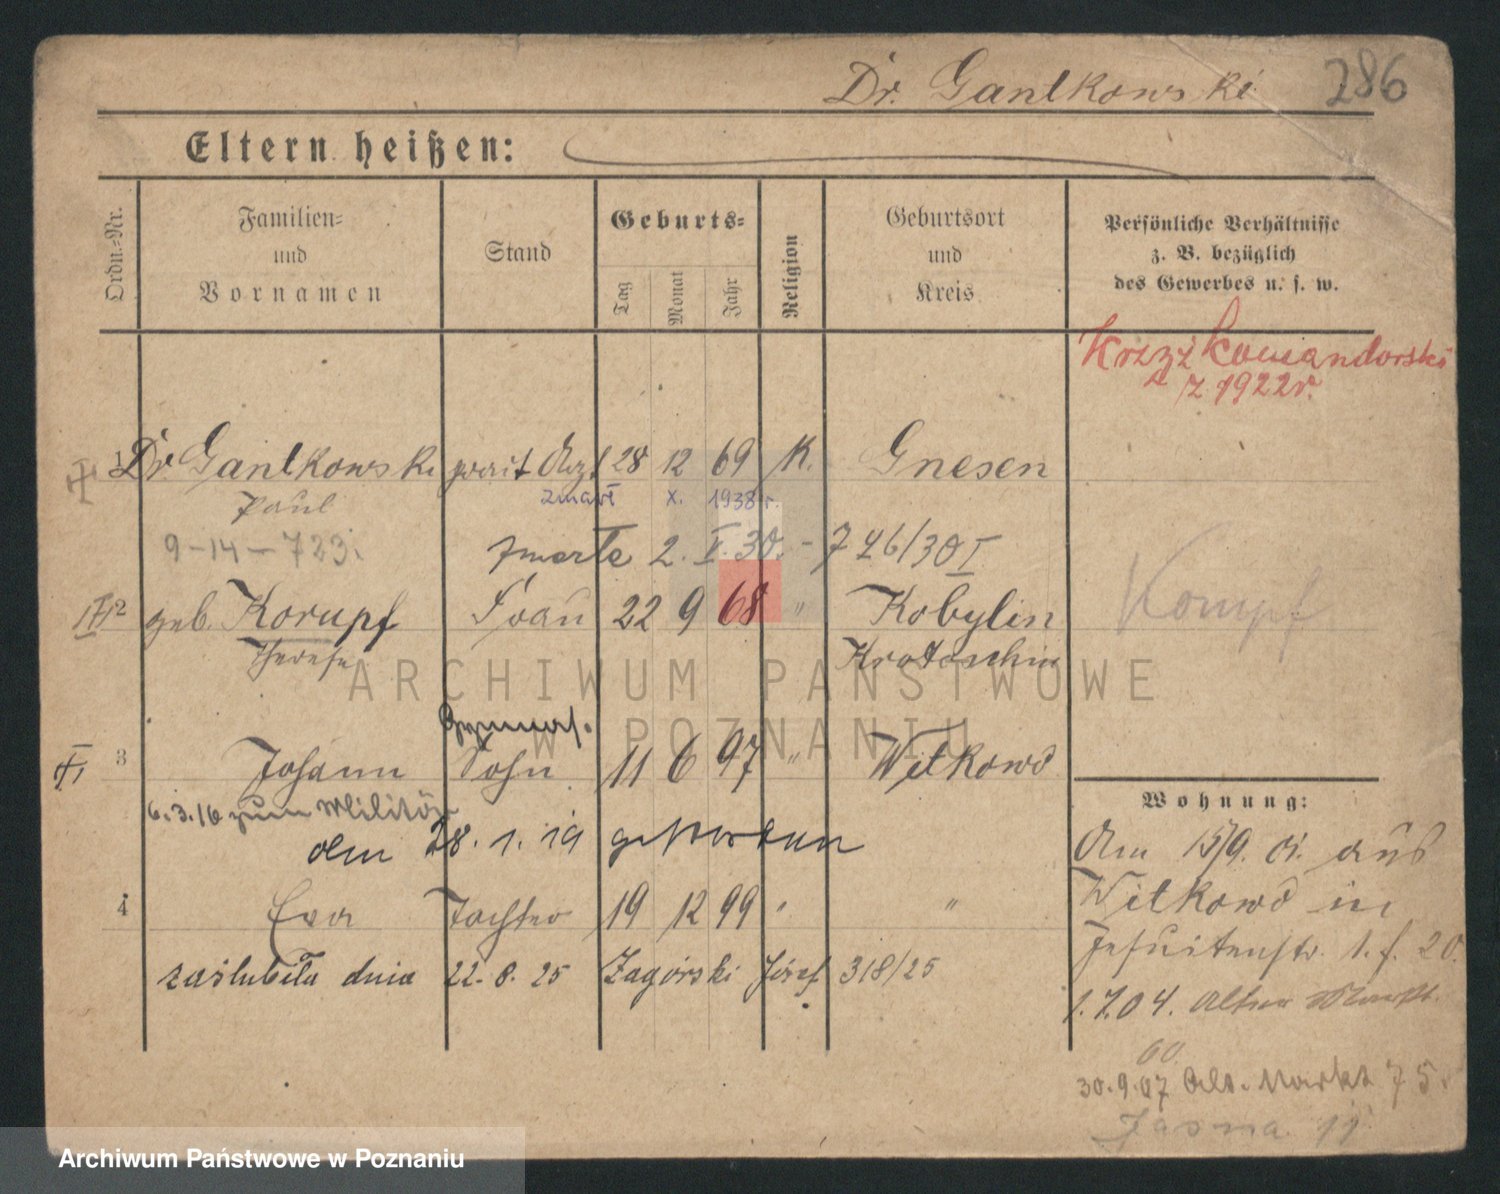 Dr. Gantkowski 286
Eltern heißen:
Ordn.=Nr.
Familien=
und
Vornamen
Stand
Geburts=
Tag
Monat
Jahr
Religion
Geburtsort
und
Kreis
Persönliche Verhältnisse
z. B. bezüglich
des Gewerbes u. s. w.
Krzyż Komandorski
z 1922 r.
1 Dr. Gantkowski prakt Arzt 28 12 69 K. Gnesen
Paul zmarł X. 1938 r.
9-14-723.
zmarła 2. V. 30. - 746/30 I
2 geb. Korupf Frau 22 9 68 " Kobylin
Therese Krotoschin
Korupf
Gymnas.
3 Johann Sohn 11 6 97 " Witkowo
6.3.16 zum Militär
dem 28. 1. 19 gestorben
4 Eva Tochter 19 12 99 " "
zaślubiła dnia 22. 8. 25 Zagórski Józef 318/25
Wohnung:
Am 15/9. 01. aus
Witkowo in
Jesuitenstr. 1. f. 20.
1.7.04. Alter Markt
60.
30.9.07 Alt. Markt 75.
Jasna 11
ARCHIWUM PAŃSTWOWE
W POZNANIU
Archiwum Państwowe w Poznaniu